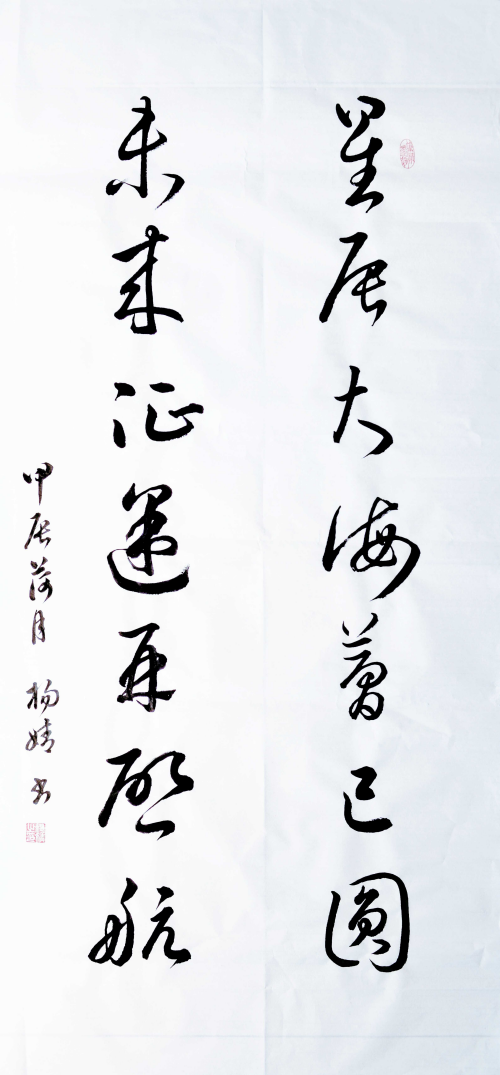 星辰大海夢已圓
未来征途再啟航
甲辰荷月 杨婧书